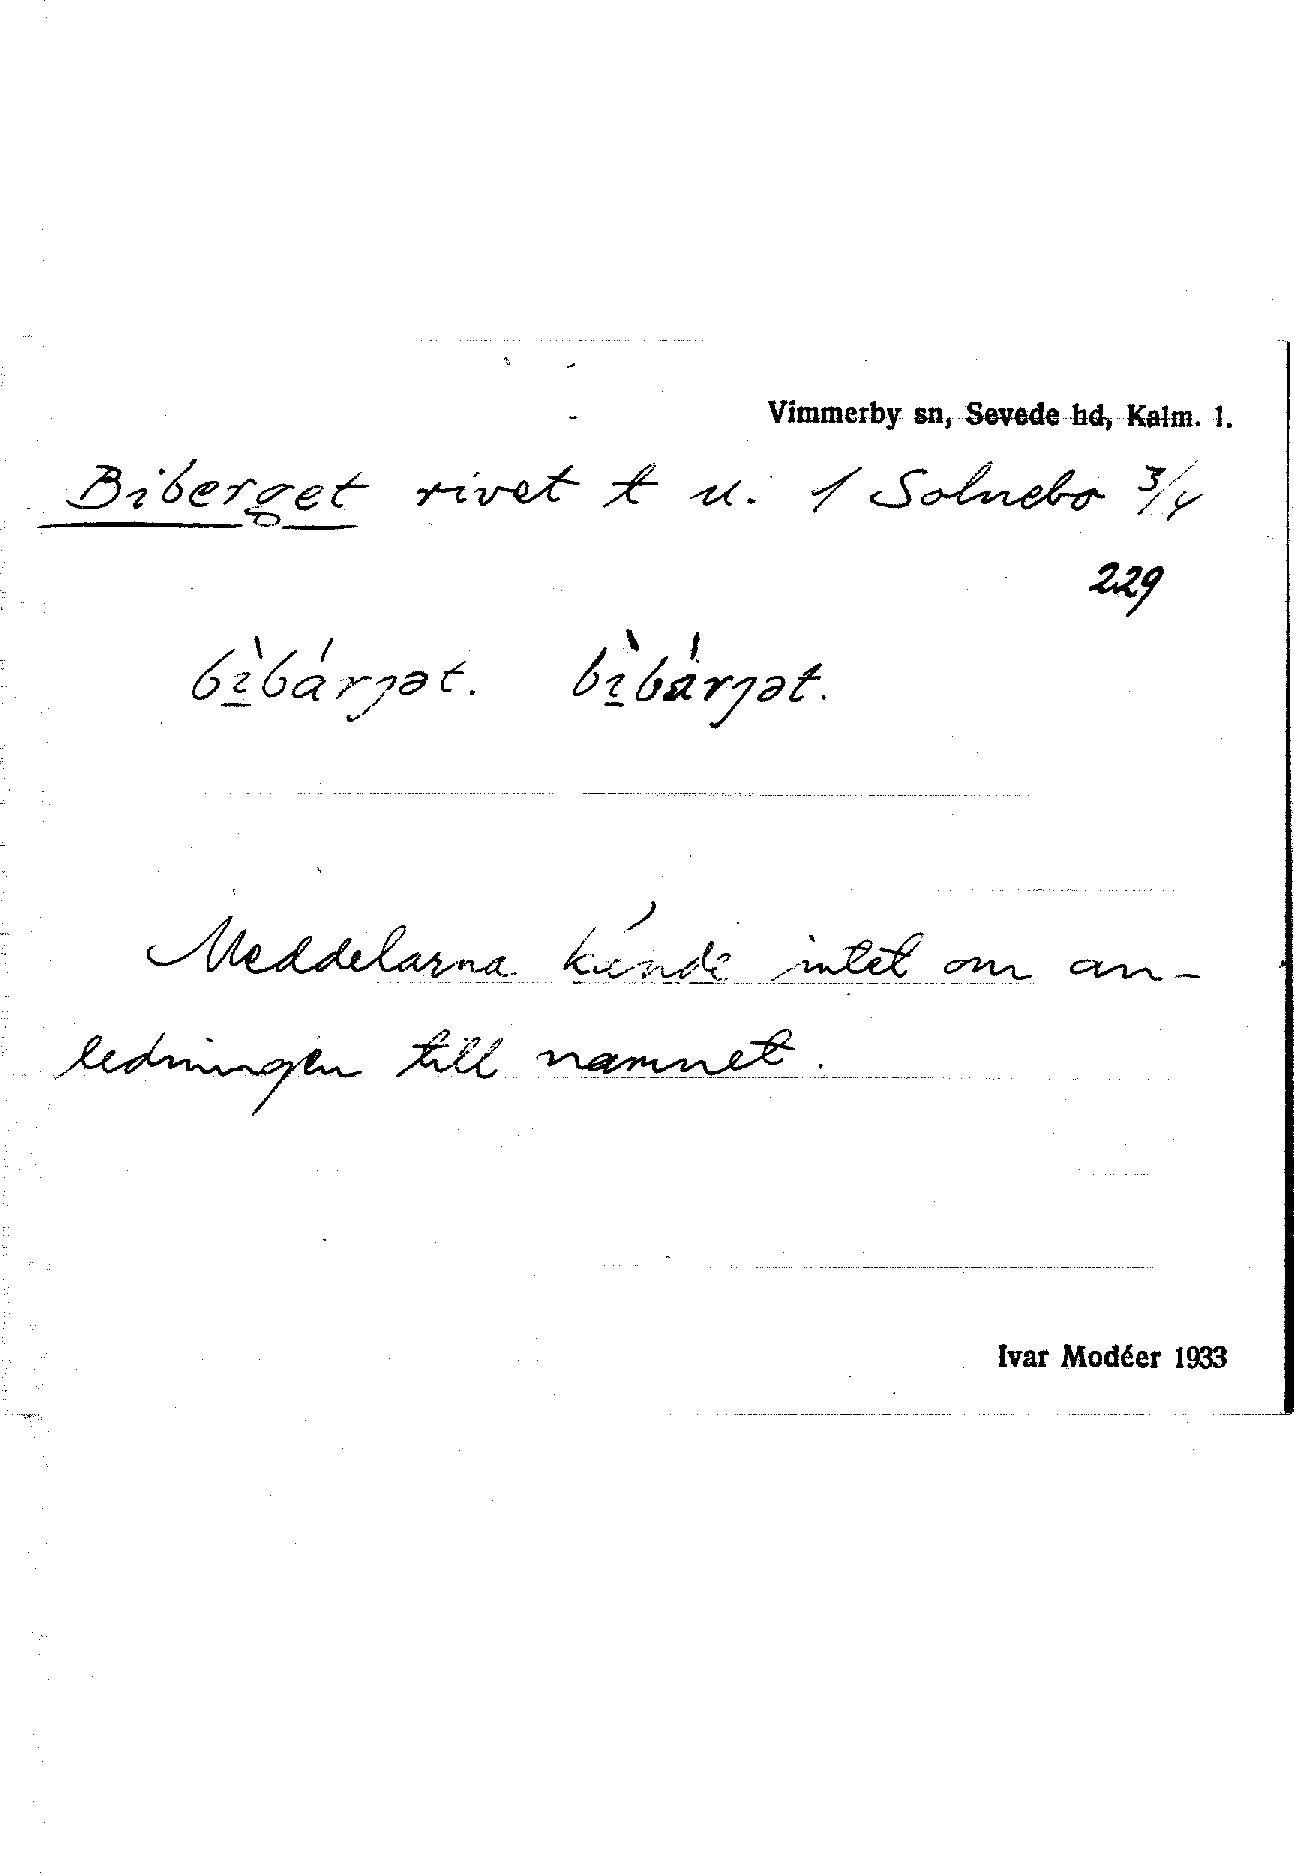 Vimmerby sn, Sevede hd, Kalm. l.
Biberget rivet t u. 1 Solnebo 3/4
229
bì̱bárjət. bì̱bárjət.
Meddelarna kände intet om an-
ledningen till namnet.
Ivar Modéer 1933